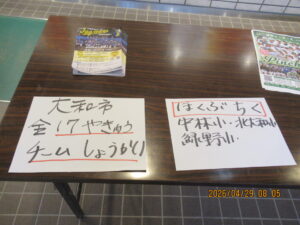 大和市
全17やきゅう
チームしょうかい
ほくぶちく
中林小・北大和小
緑野小
2026/04/29 08:05